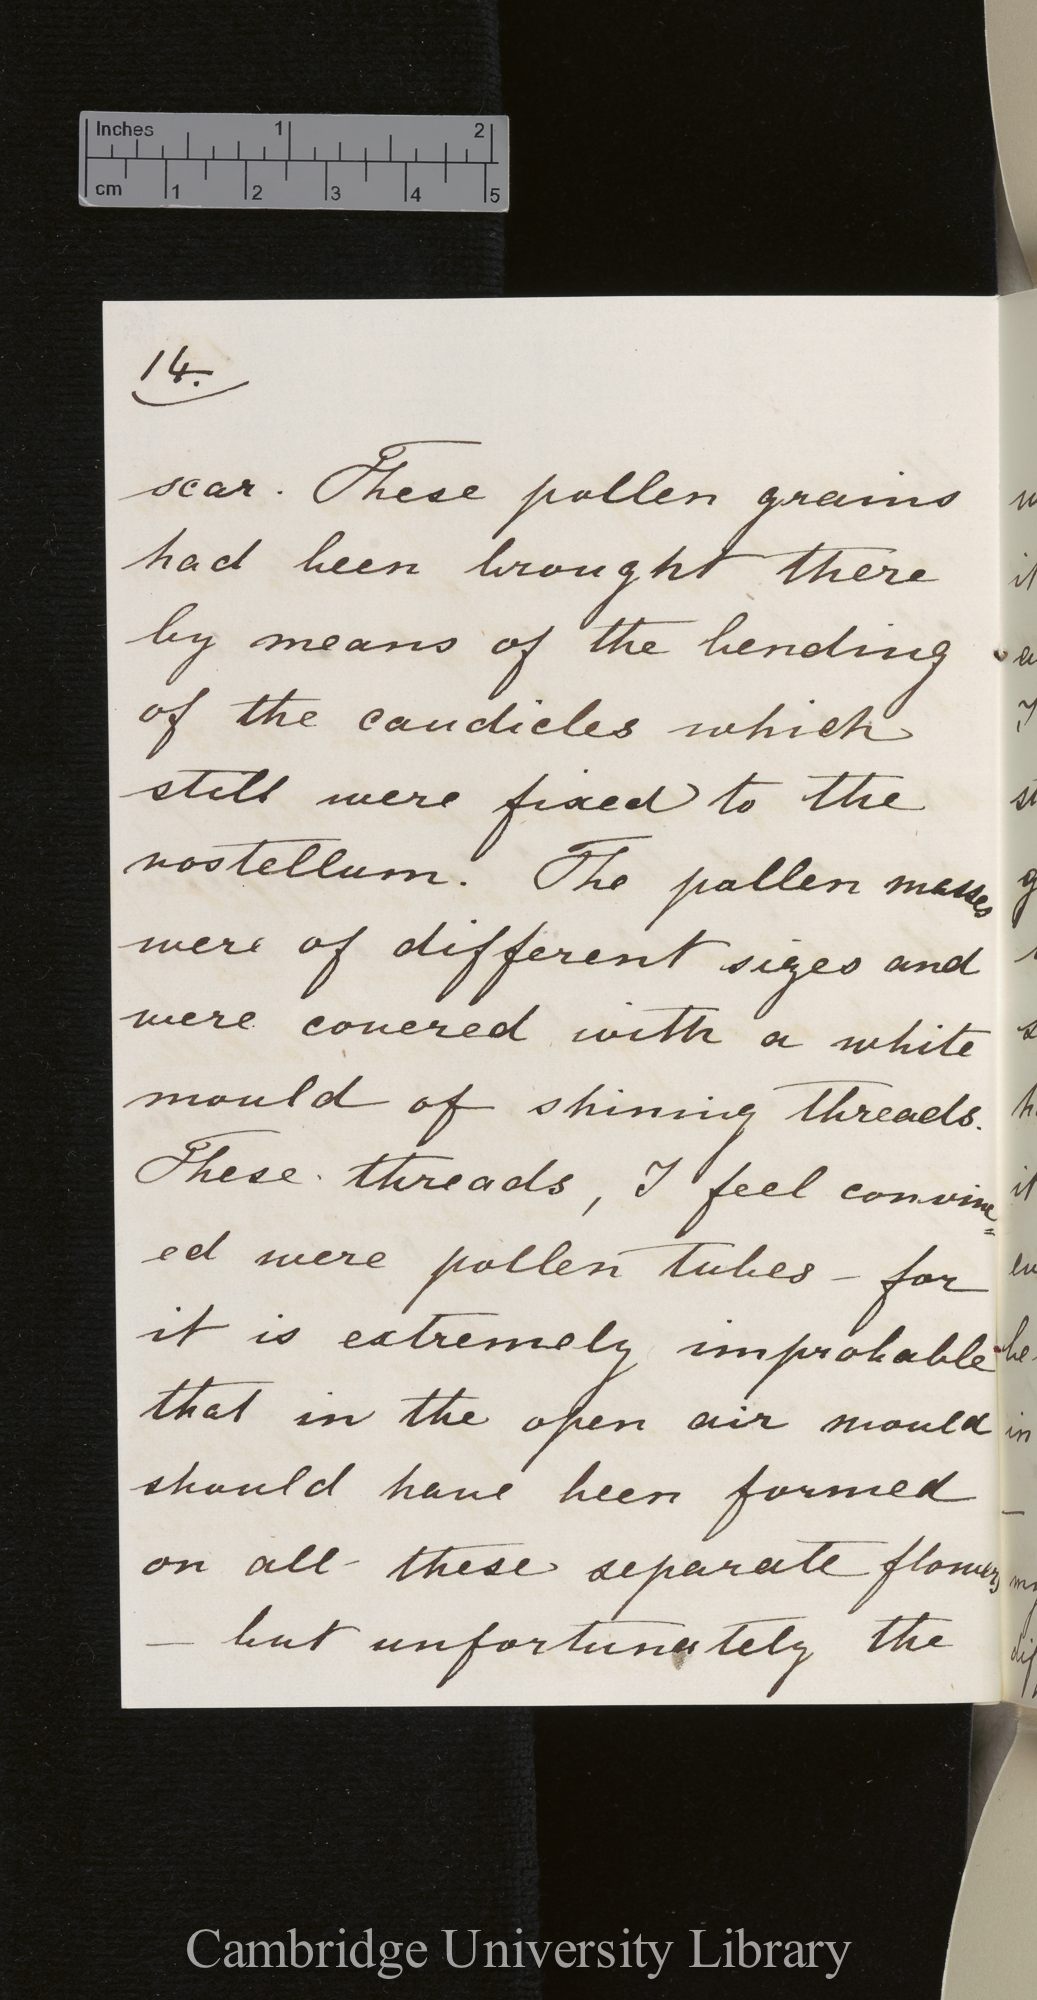 Inches 1 2
cm 1 2 3 4 5
14.
scar. These pollen grains
had been brought there
by means of the bending
of the caudicles which
still were fixed to the
rostellum. The pollen masses
were of different sizes and
were covered with a white
mould of shining threads.
These threads, I feel convinc=
ed were pollen tubes – for
it is extremely improbable
that in the open air mould
should have been formed
on all these separate flowers
– but unfortunately the
Cambridge University Library